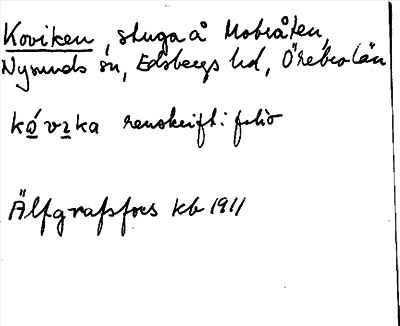 Koviken, stuga å Mobråten,
Nysunds sn, Edsbergs hd, Örebro län
kóvɪka renskrift: folio
Älfgrafsfors kb 1911